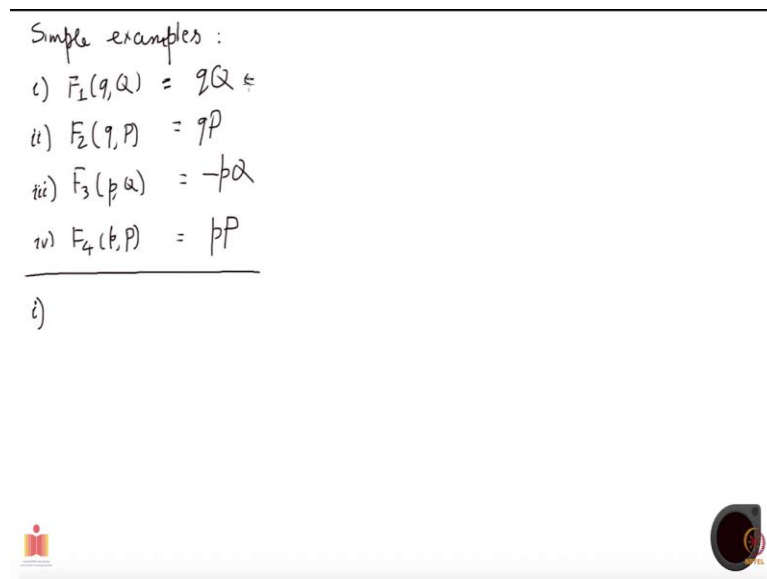 Simple examples :
i) F₁(q,Q) = qQ ←
ii) F₂(q,P) = qP
iii) F₃(p,Q) = -pQ
iv) F₄(p,P) = pP
i)
NPTEL